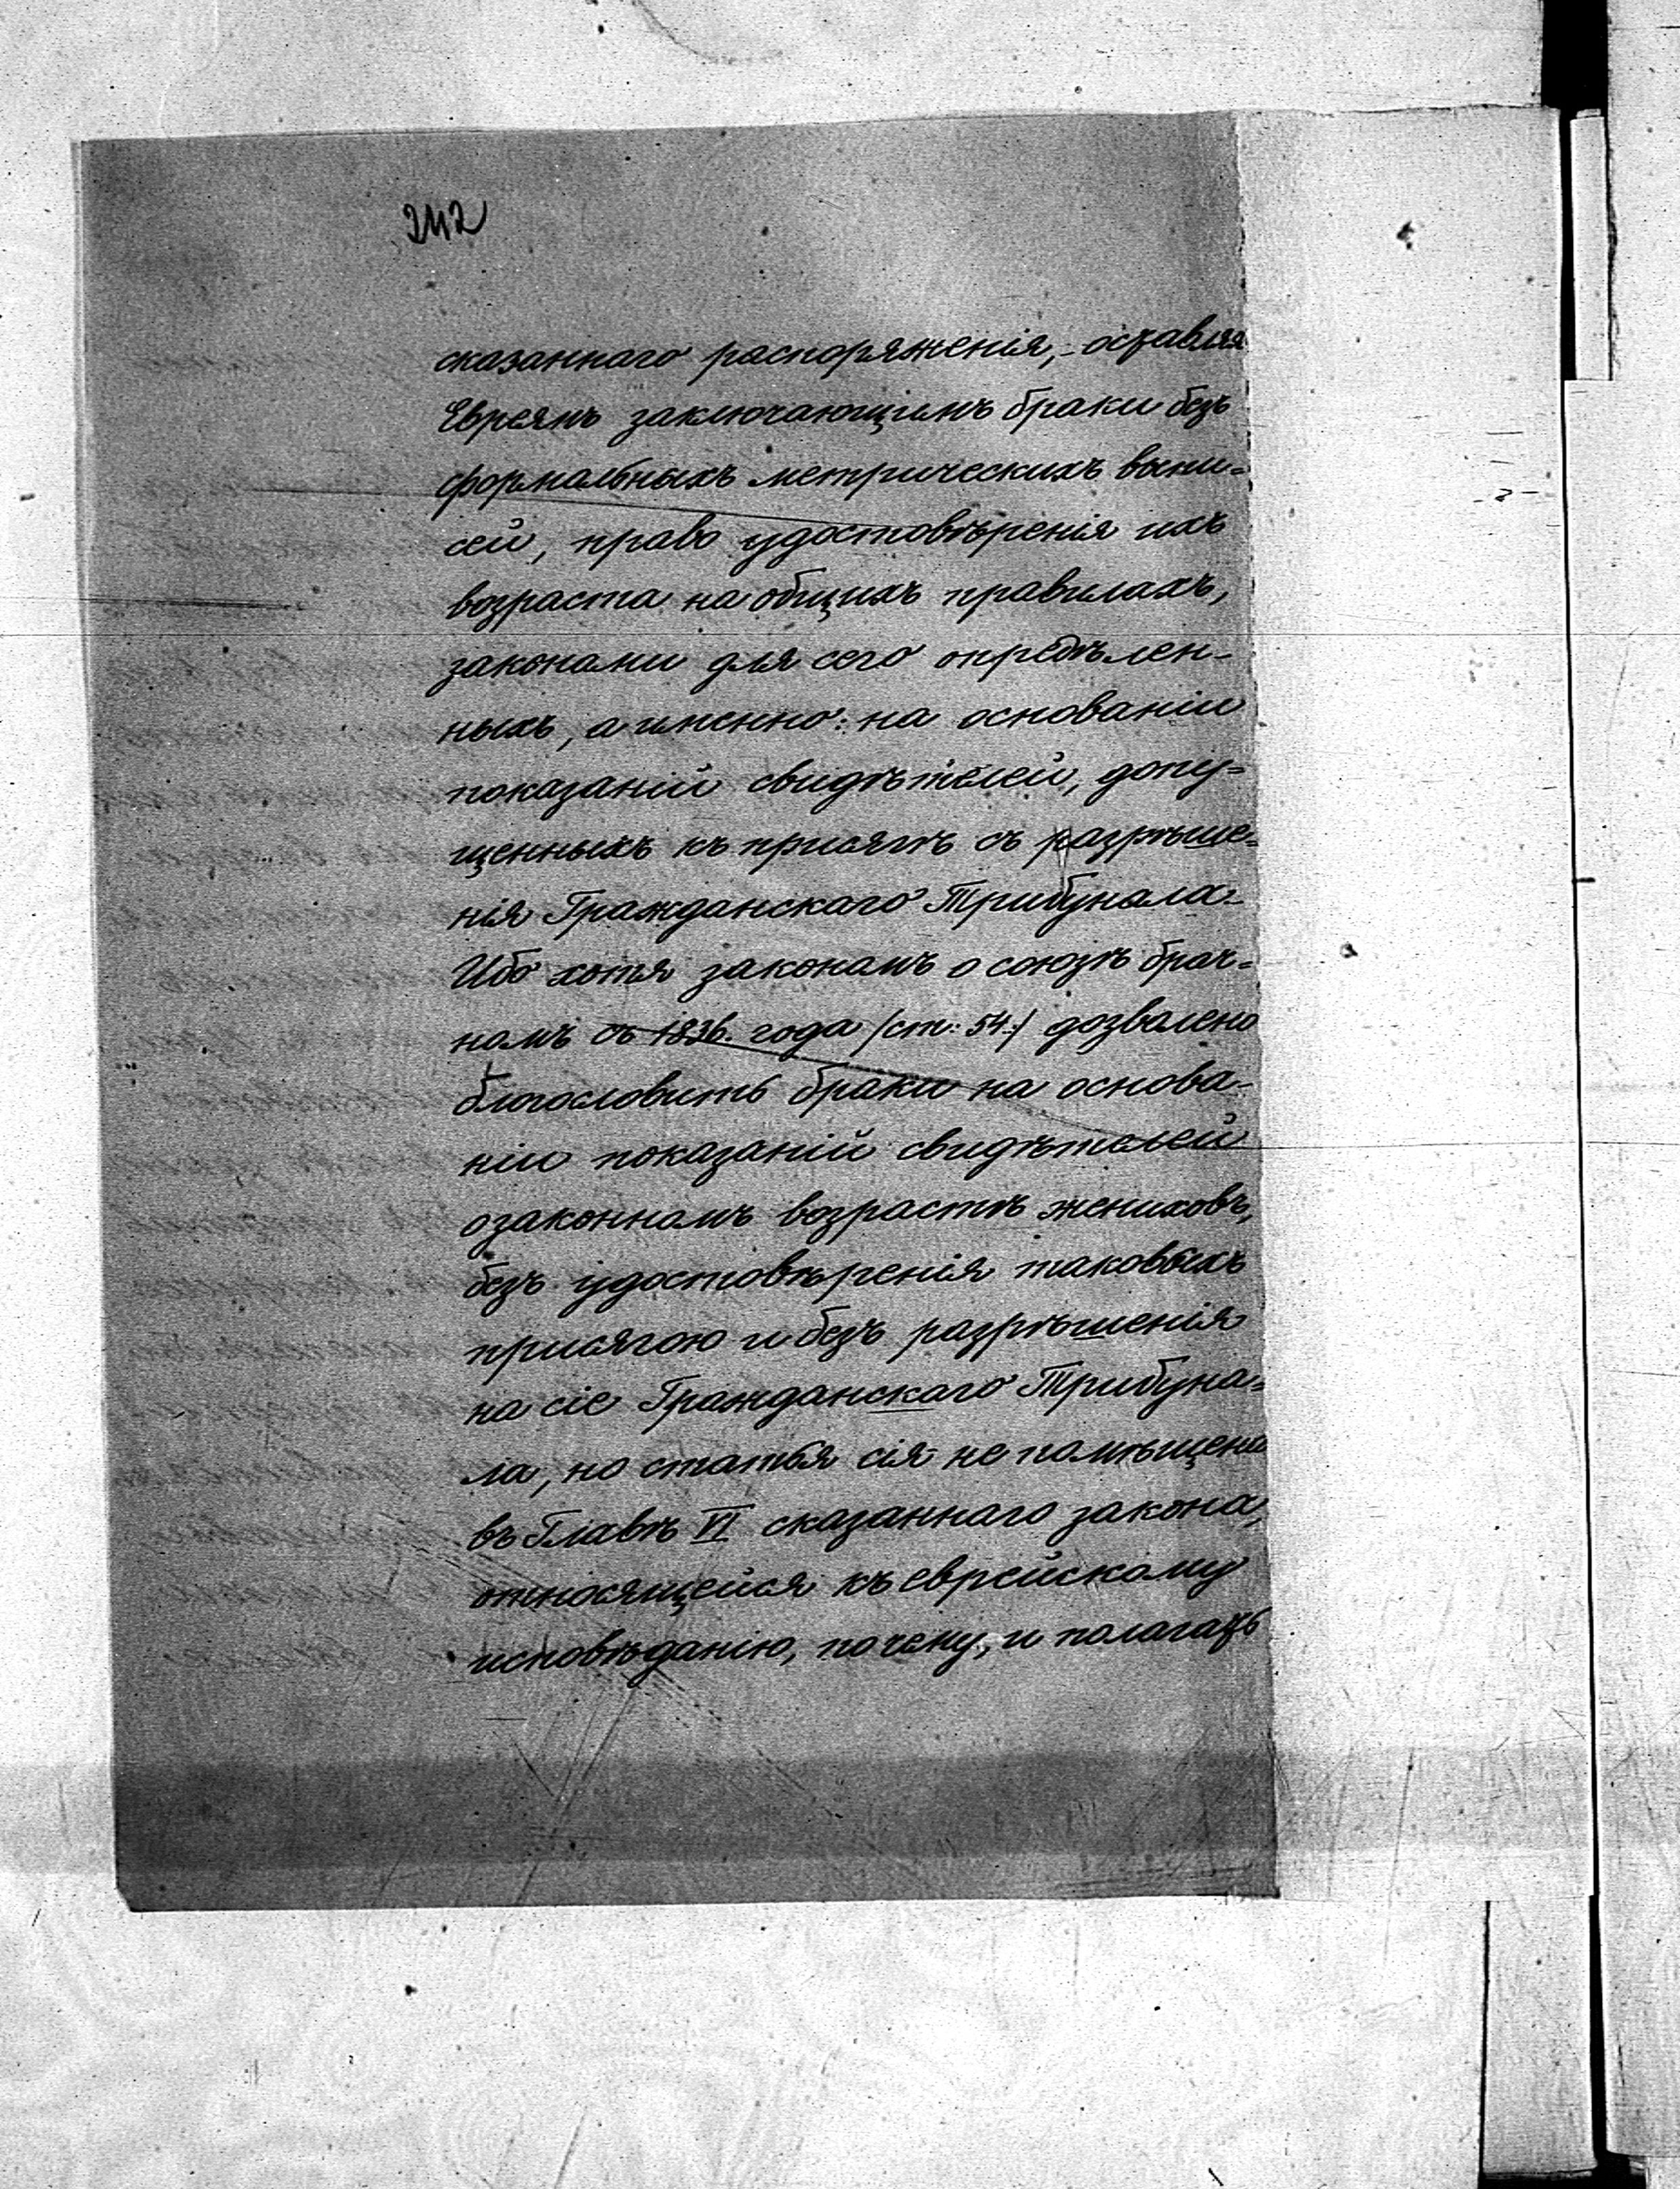 242
сказаннаго распоряженія,- оставляя
Евреямъ заключающимъ браки безъ
формальныхъ метрическихъ выпи=
сей, право удостовѣренія ихъ
возраста на общихъ правилахъ,
законами для сего опредѣлен-
ныхъ, а именно: на основаніи
показаній свидѣтелей, допу=
щенныхъ къ присягѣ съ разрѣше=
нія Гражданскаго Трибунала.-
Ибо хотя закономъ о союзѣ брач=
номъ съ 1836. года /ст: 54./ дозволено
благословить браки на основа-
ніи показаній свидѣтелей
о законномъ возрастѣ жениховъ,
безъ удостовѣренія таковыхъ
присягою и безъ разрѣшенія
на сіе Гражданскаго Трибуна=
ла, но статья сія не помѣщена
въ Главѣ VI сказаннаго закона,
относящейся къ еврейскому
исповѣданію, почему, и полагать